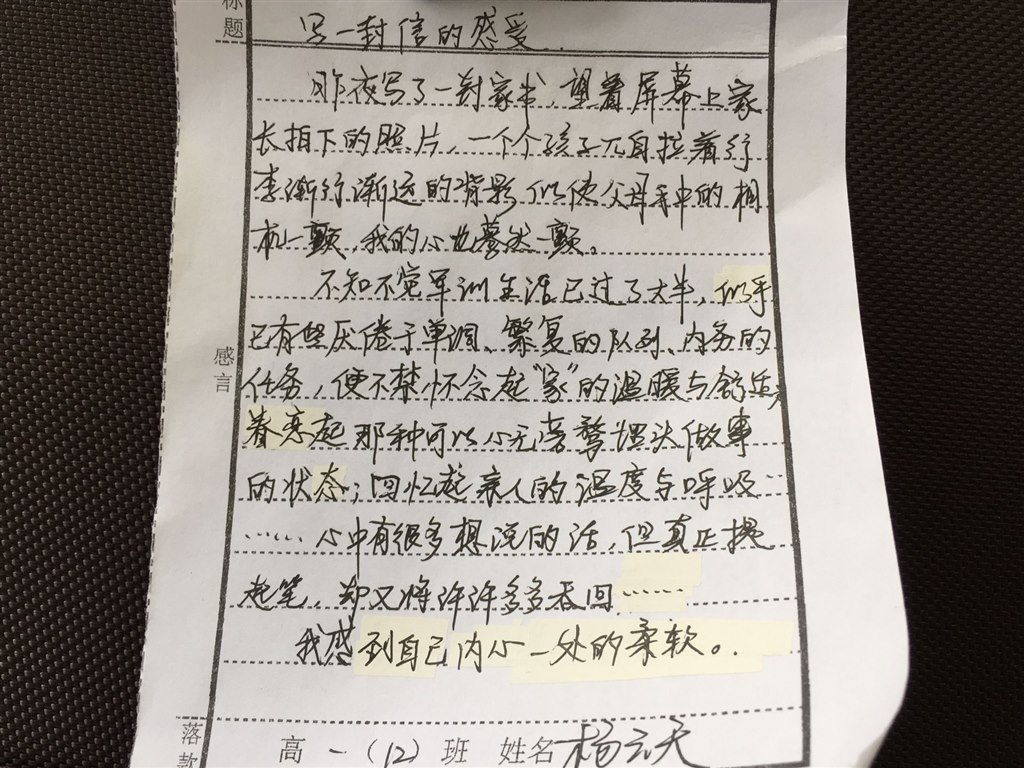 标题
写一封信的感受
昨夜写了一封家书,望着屏幕上家
长拍下的照片,一个个孩子兀自拉着行
李渐行渐远的背影似使父母手中的相
机一颤,我的心也蓦然一颤。
不知不觉军训生活已过了大半,似乎
已有些厌倦于单调、繁复的队列、内务的
任务,便不禁怀念起“家”的温暖与舒适;
眷恋起那种可以心无旁骛埋头做事
的状态;回忆起亲人的温度与呼吸……
……心中有很多想说的话,但真正提
起笔,却又将许许多多吞回……
我感到自己内心一处的柔软。
感言
落款
高一(12)班 姓名 杨云天